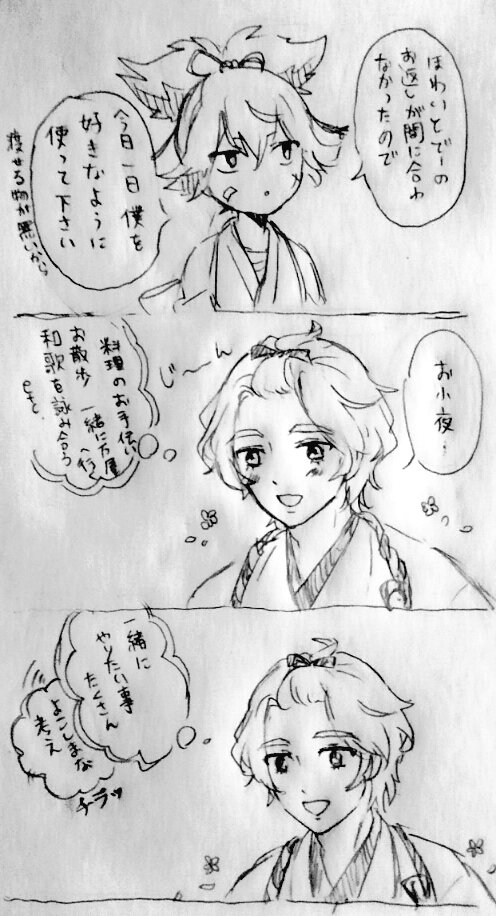 ほわいとでーの
お返しが間に合わ
なかったので
今日一日僕を
好きなように
使って下さい
渡せる物が無いから
お小夜…
じ〜ん
料理のお手伝い
お散歩 一緒に万屋へ行く
和歌を詠み合う
etc
一緒に
やりたい事
たくさん
よこしまな
考え
チラッ